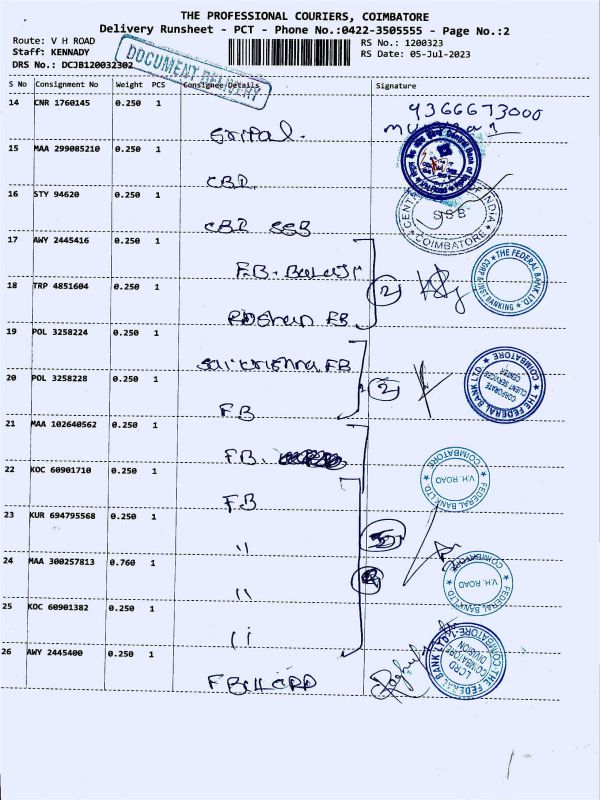 THE PROFESSIONAL COURIERS, COIMBATORE
Delivery Runsheet - PCT - Phone No.:0422-3505555 - Page No.:2
Route: V H ROAD
RS No.: 1200323
Staff: KENNADY
RS Date: 05-Jul-2023
DRS No.: DCJB120032302
DOCUMENT DELIVERY
S No Consignment No Weight PCS Consignee Details Signature
14 CNR 1760145 0.250 1
9366673000
Sripal.
15 MAA 299085210 0.250 1
CBI
16 STY 94620 0.250 1
CBI SSB
SSB
COIMBATORE
17 AWY 2445416 0.250 1
F.B. Balaji
THE FEDERAL BANK LTD
CORP & INST BANKING
18 TRP 4851604 0.250 1
2
Roshan FB
19 POL 3258224 0.250 1
Saikrishna FB
THE FEDERAL BANK LTD.
COIMBATORE
CORPORATE
CLIENT SERVICES
CENTER
20 POL 3258228 0.250 1
2
FB
21 MAA 102640562 0.250 1
F.B.
FEDERAL BANK LTD.
COIMBATORE
V.H. ROAD
22 KOC 60901710 0.250 1
FB
23 KUR 694795568 0.250 1
5
"
24 MAA 300257813 0.760 1
FEDERAL BANK LTD.
COIMBATORE
V.H. ROAD
"
25 KOC 60901382 0.250 1
"
26 AWY 2445400 0.250 1
THE FEDERAL BANK LTD.
LCRD
COIMBATORE
DIVISION
FB LCRD